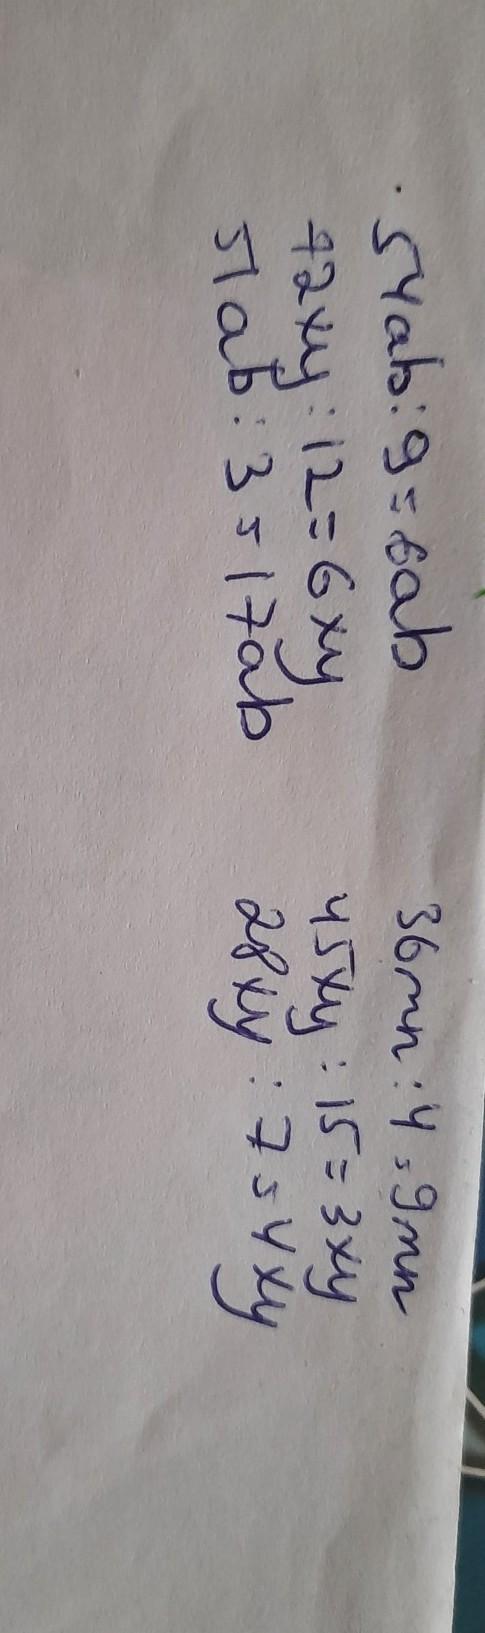 54ab : 9 = 6ab
72xy : 12 = 6xy
51ab : 3 = 17ab
36mn : 4 = 9mn
45xy : 15 = 3xy
28xy : 7 = 4xy